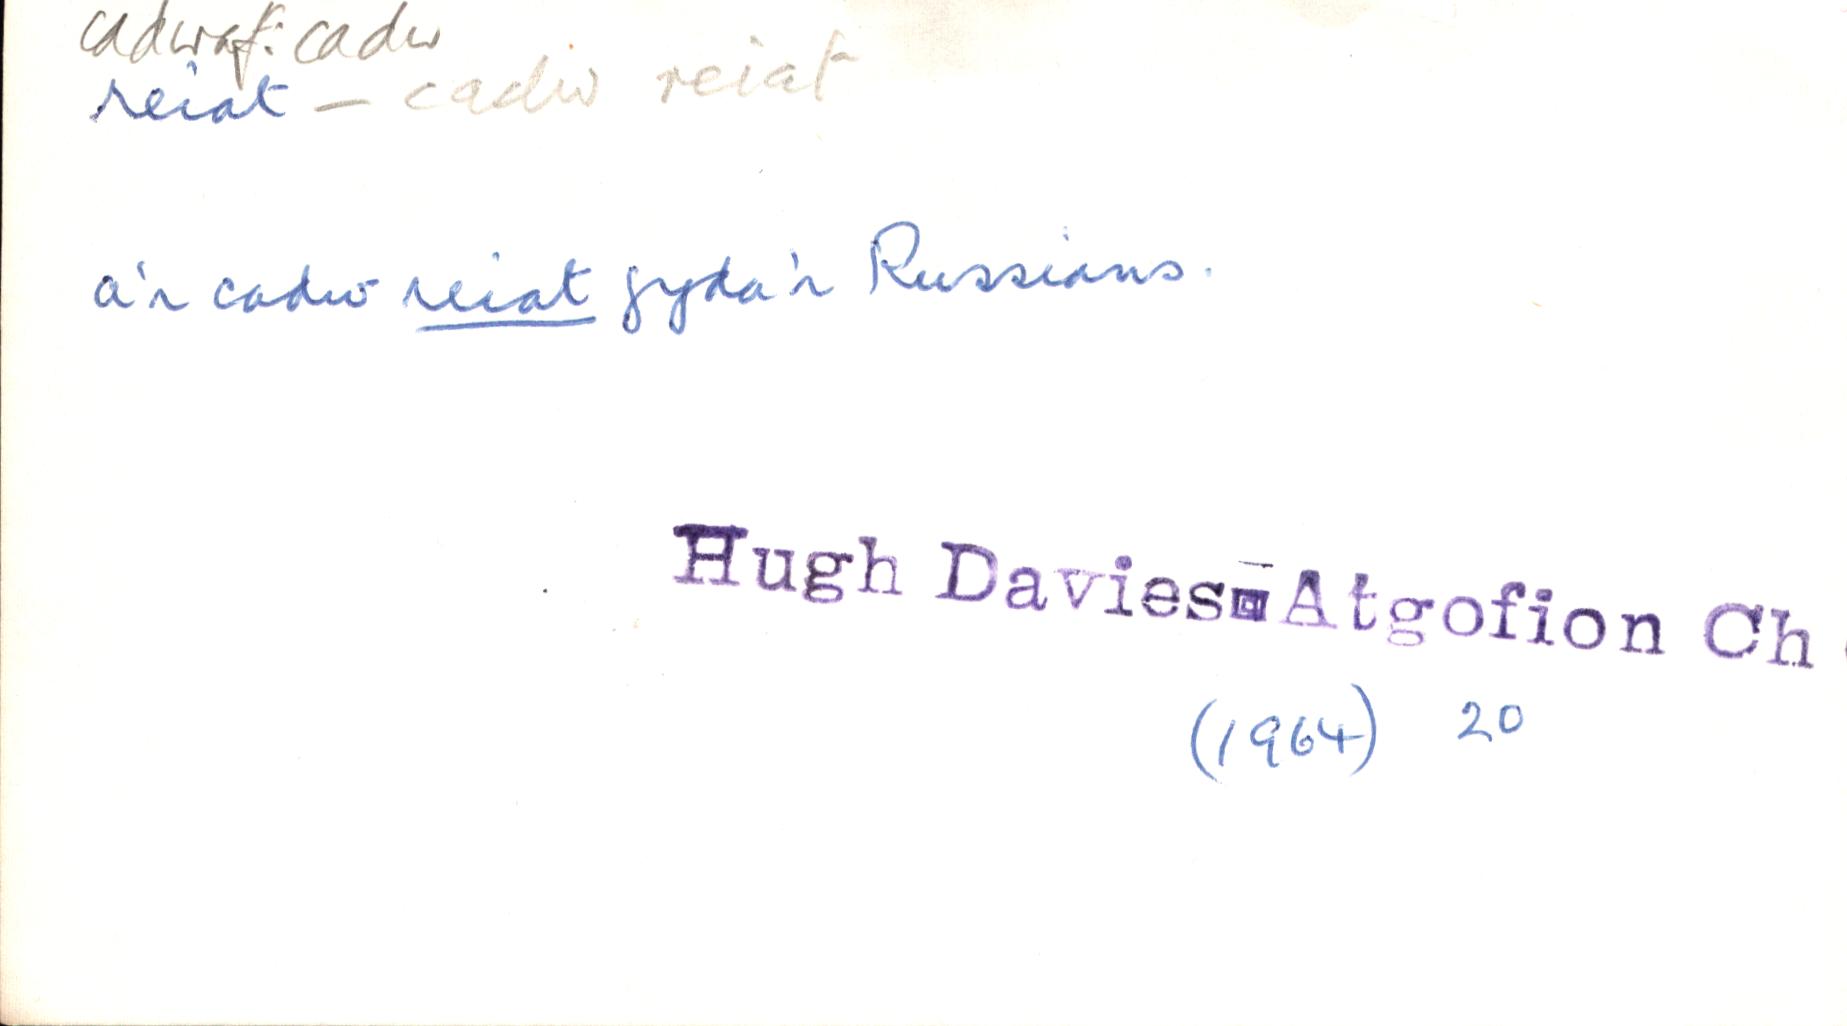 cadwaf: cadw
reiat — cadw reiat
a'r cadw reiat gyda'r Russians.
Hugh Davies - Atgofion Ch
(1964) 20